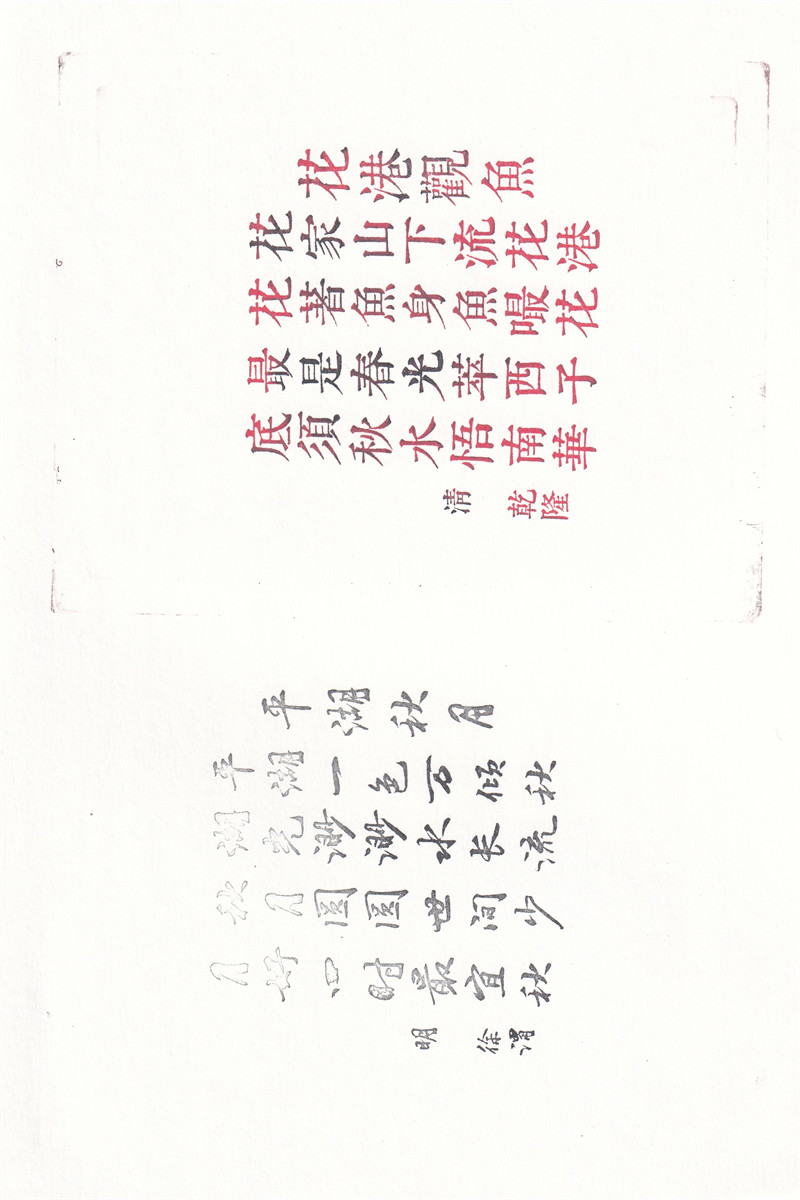 花港觀魚
花家山下流花港
花著魚身魚嘬花
最是春光萃西子
底須秋水悟南華
清 乾隆
平湖秋月
平湖一色万倾秋
湖光渺渺水长流
秋月圓圓世间少
月好四时最宜秋
明 徐渭